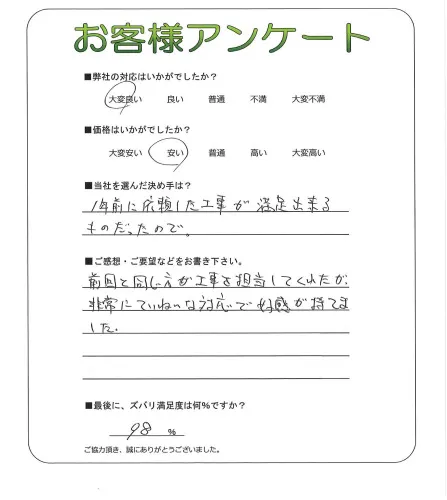 お客様アンケート
■弊社の対応はいかがでしたか？
大変良い 良い 普通 不満 大変不満
■価格はいかがでしたか？
大変安い 安い 普通 高い 大変高い
■当社を選んだ決め手は？
1年前に依頼した工事が満足出来る
ものだったので。
■ご感想・ご要望などをお書き下さい。
前回と同じ方が工事を担当してくれたが
非常にていねいな対応で好感が持てま
した。
■最後に、ズバリ満足度は何%ですか？
98 %
ご協力頂き、誠にありがとうございました。